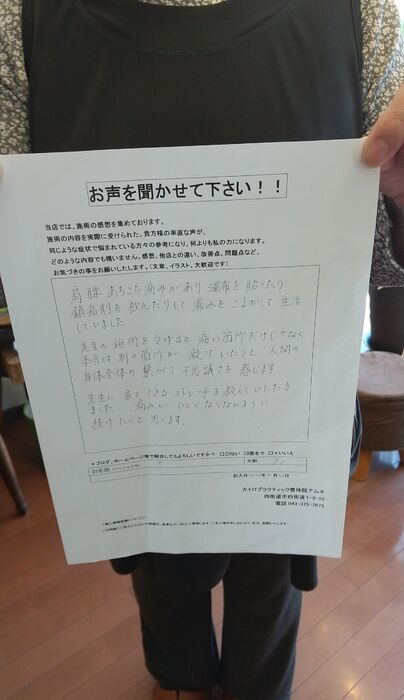 お声を聞かせて下さい！！
当店では、施術の感想を集めております。
施術の内容を実際に受けられた、貴方様の率直な声が、
同じような症状で悩まれている方々の参考になり、何よりも私の力になります。
どのような内容でも構いません。感想、他店との違い、改善点、問題点など、
お気づきの事をお願いします。（文章、イラスト、大歓迎です）
肩 腰 あちこち痛みがあり 湿布を貼ったり
鎮痛剤を飲んだりして 痛みをごまかして生活
していました
先生の施術を受けると 痛い箇所だけじゃなく
本当は別の箇所が 凝っていたりと 人間の
身体全体の繋がり 不思議さを感じます
先生に家でできるストレッチを教えていただき
ました 痛みがひどくならないように
続けたいと思います。
●ブログ、ホームページ等で紹介してもよろしいですか？ □○はい □匿名で □×いいえ
お名前 年齢
記入日
カイロプラクティック整体院アムネ
四街道市四街道1-8-15
電話 043-375-7873